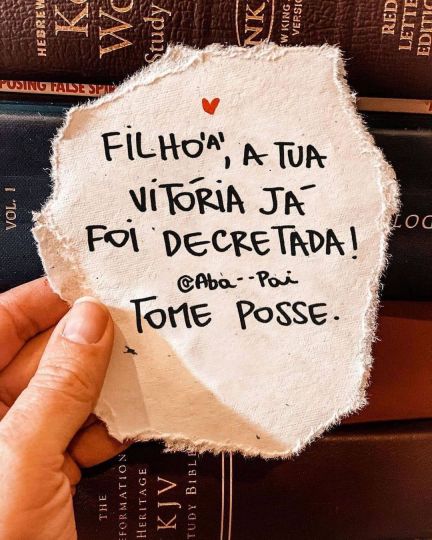 HEBREW
Ke
Wo
Study
NKJ
NEW KING J
VERSION
RED
LETTE
EDITI
POSING FALSE SPI
VOL. 1
LOG
FILHO'A', A TUA
VITÓRIA JÁ
FOI DECRETADA!
@Abà--Pai
TOME POSSE.
THE
EFORMATION
HERITAGE
KJV
STUDY BIBLE